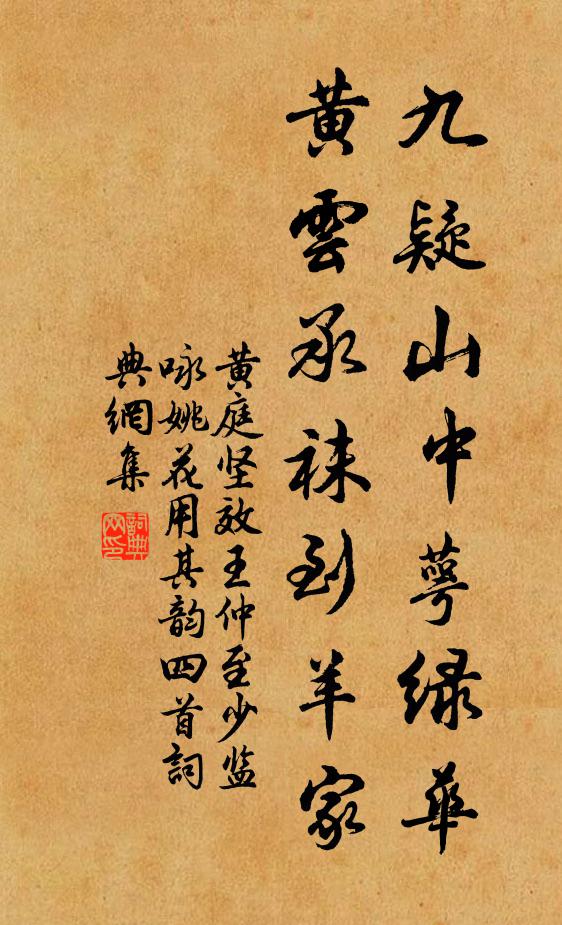 九疑山中萼緑華
黄雲承袜到羊家
黄庭坚效王仲至少监
咏姚花用其韵四首詞
典網集
詞典网印